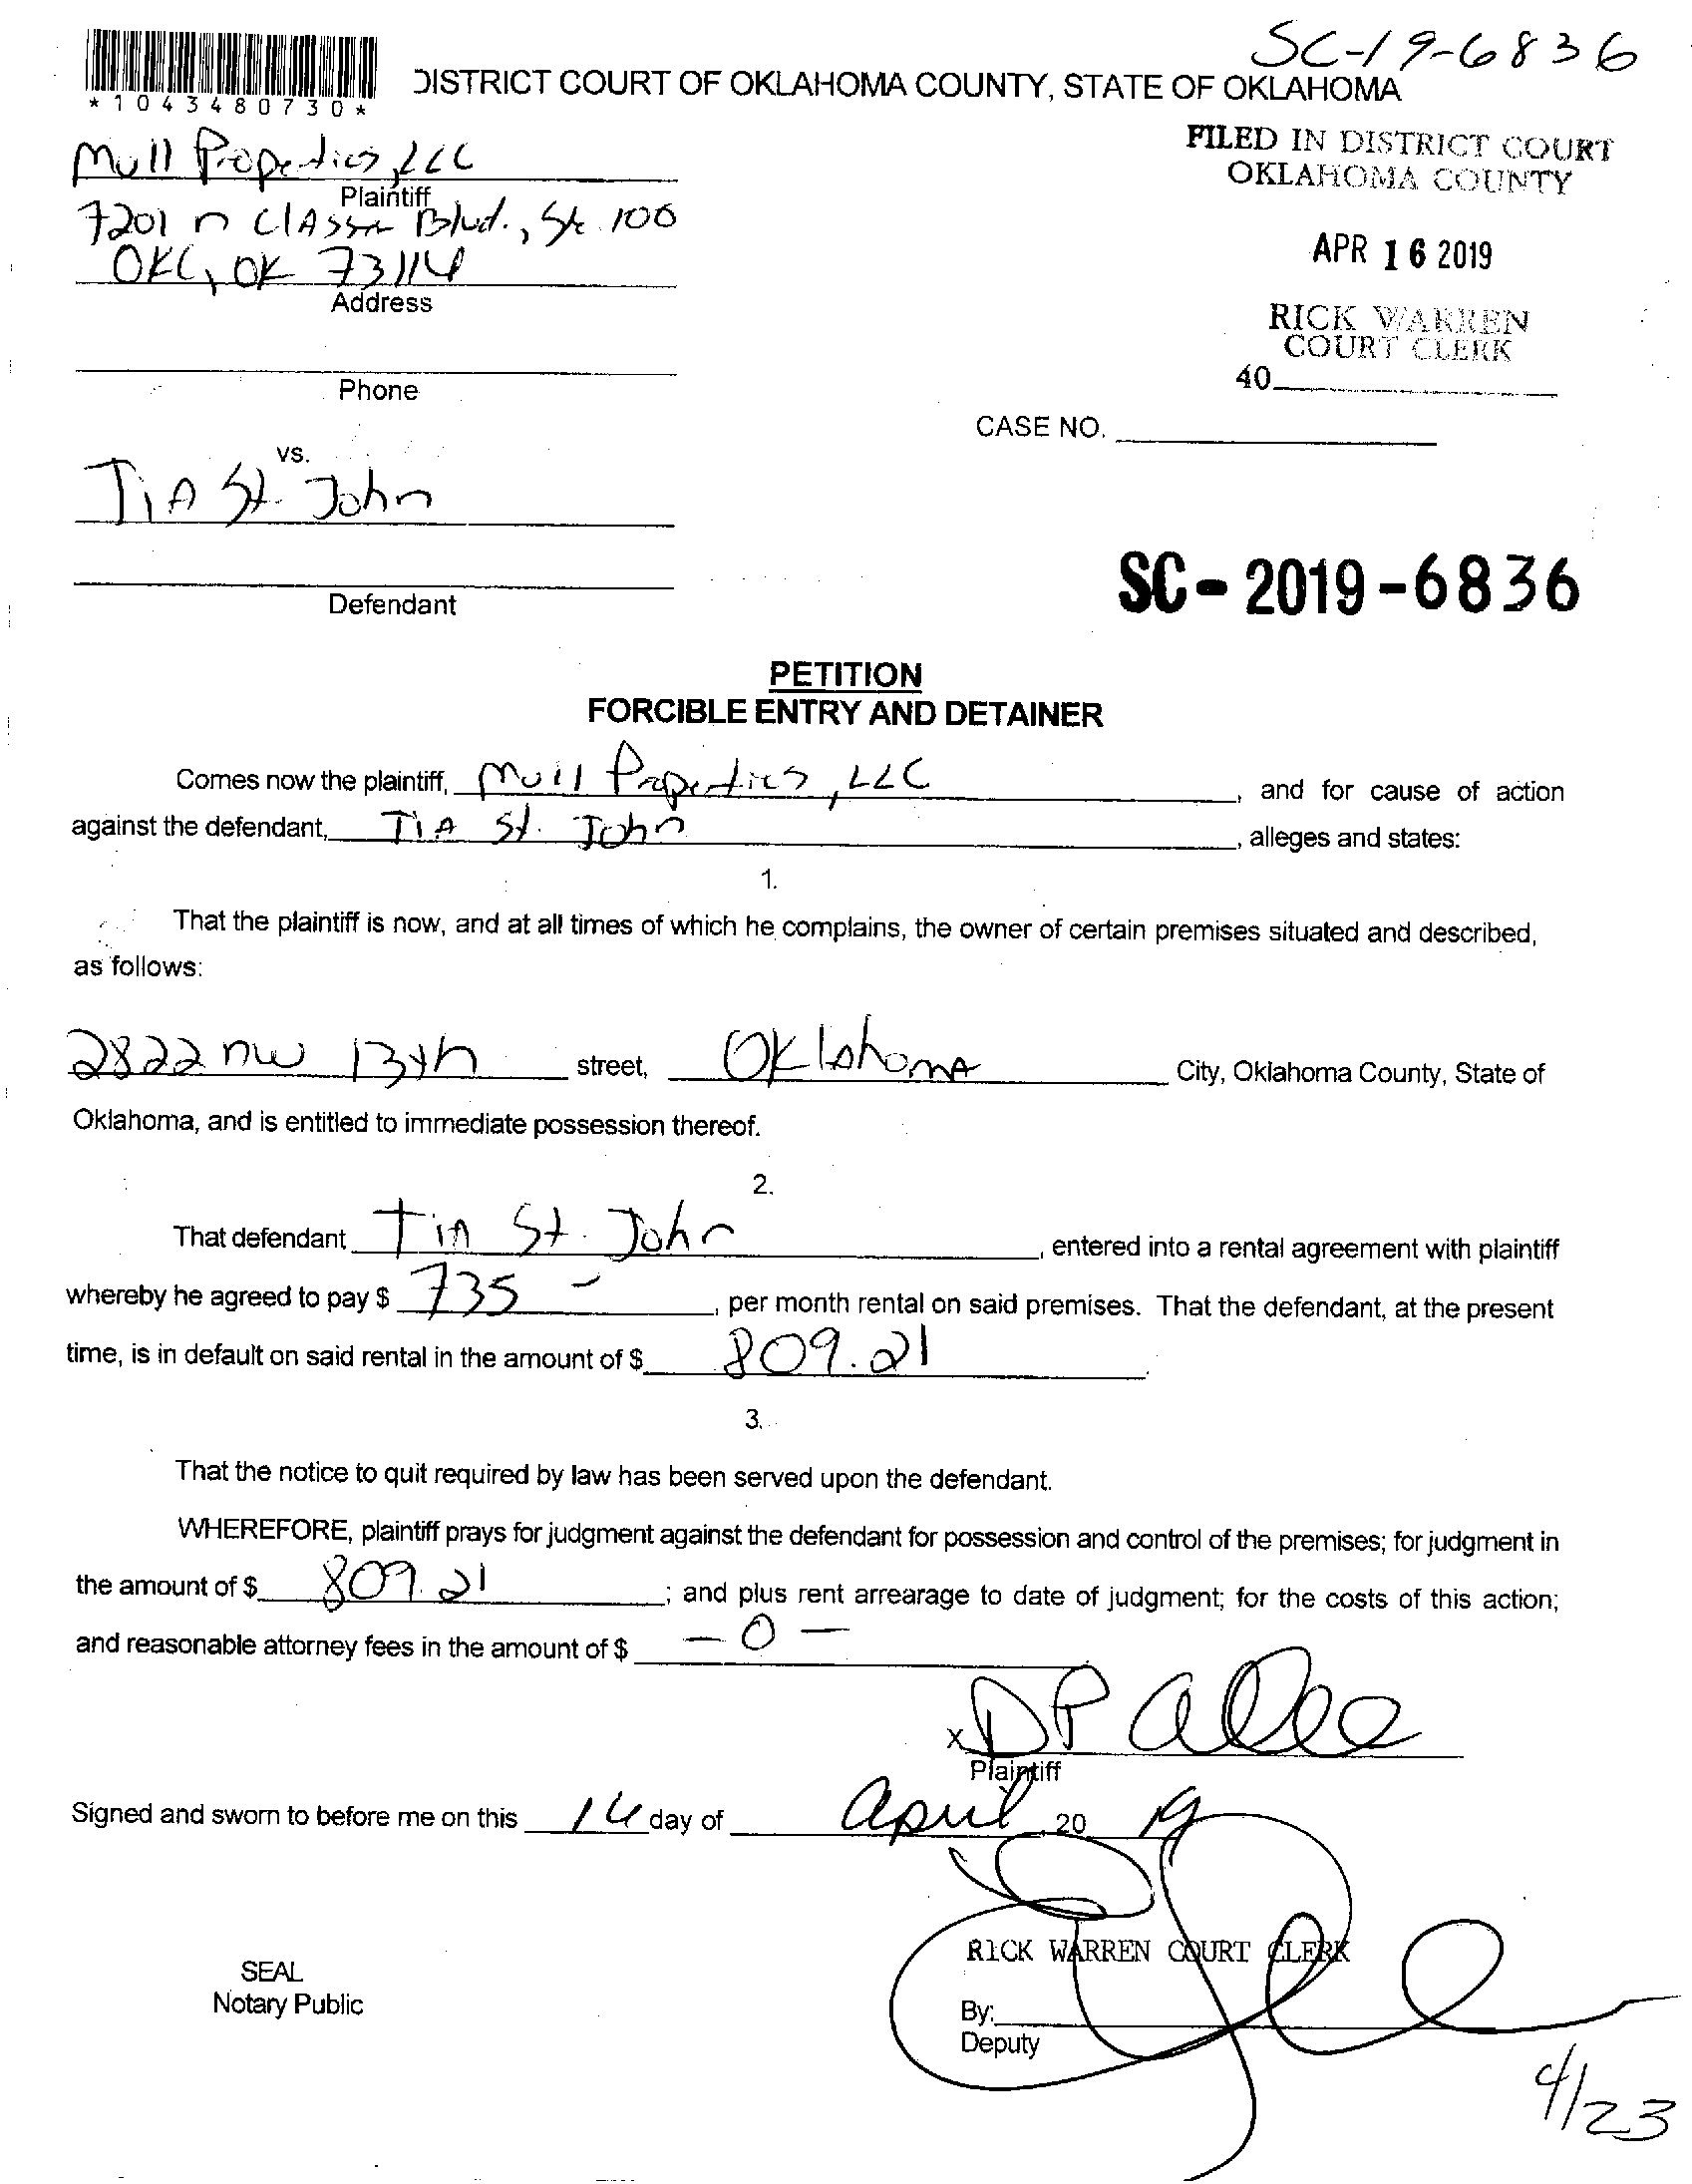 SC-19-6836
*1043480730*
DISTRICT COURT OF OKLAHOMA COUNTY, STATE OF OKLAHOMA
FILED IN DISTRICT COURT
OKLAHOMA COUNTY
Mull Properties, LLC
Plaintiff
7201 n Classen Blvd., Ste. 100
OKC, OK 73116
Address
APR 16 2019
RICK WARREN
COURT CLERK
40
Phone
CASE NO.
vs.
Tia St. John
SC-2019-6836
Defendant
PETITION
FORCIBLE ENTRY AND DETAINER
Comes now the plaintiff, Mull Properties, LLC, and for cause of action
against the defendant, Tia St. John, alleges and states:
1.
That the plaintiff is now, and at all times of which he complains, the owner of certain premises situated and described,
as follows:
2822 nw 13th street, Oklahoma City, Oklahoma County, State of
Oklahoma, and is entitled to immediate possession thereof.
2.
That defendant Tia St. John, entered into a rental agreement with plaintiff
whereby he agreed to pay $ 735 -, per month rental on said premises. That the defendant, at the present
time, is in default on said rental in the amount of $ 809.21.
3.
That the notice to quit required by law has been served upon the defendant.
WHEREFORE, plaintiff prays for judgment against the defendant for possession and control of the premises; for judgment in
the amount of $ 809.21; and plus rent arrearage to date of judgment; for the costs of this action;
and reasonable attorney fees in the amount of $ - 0 -
x DP
Plaintiff
Signed and sworn to before me on this 16 day of April, 20 19
RICK WARREN COURT CLERK
SEAL
Notary Public
By:
Deputy
4/23